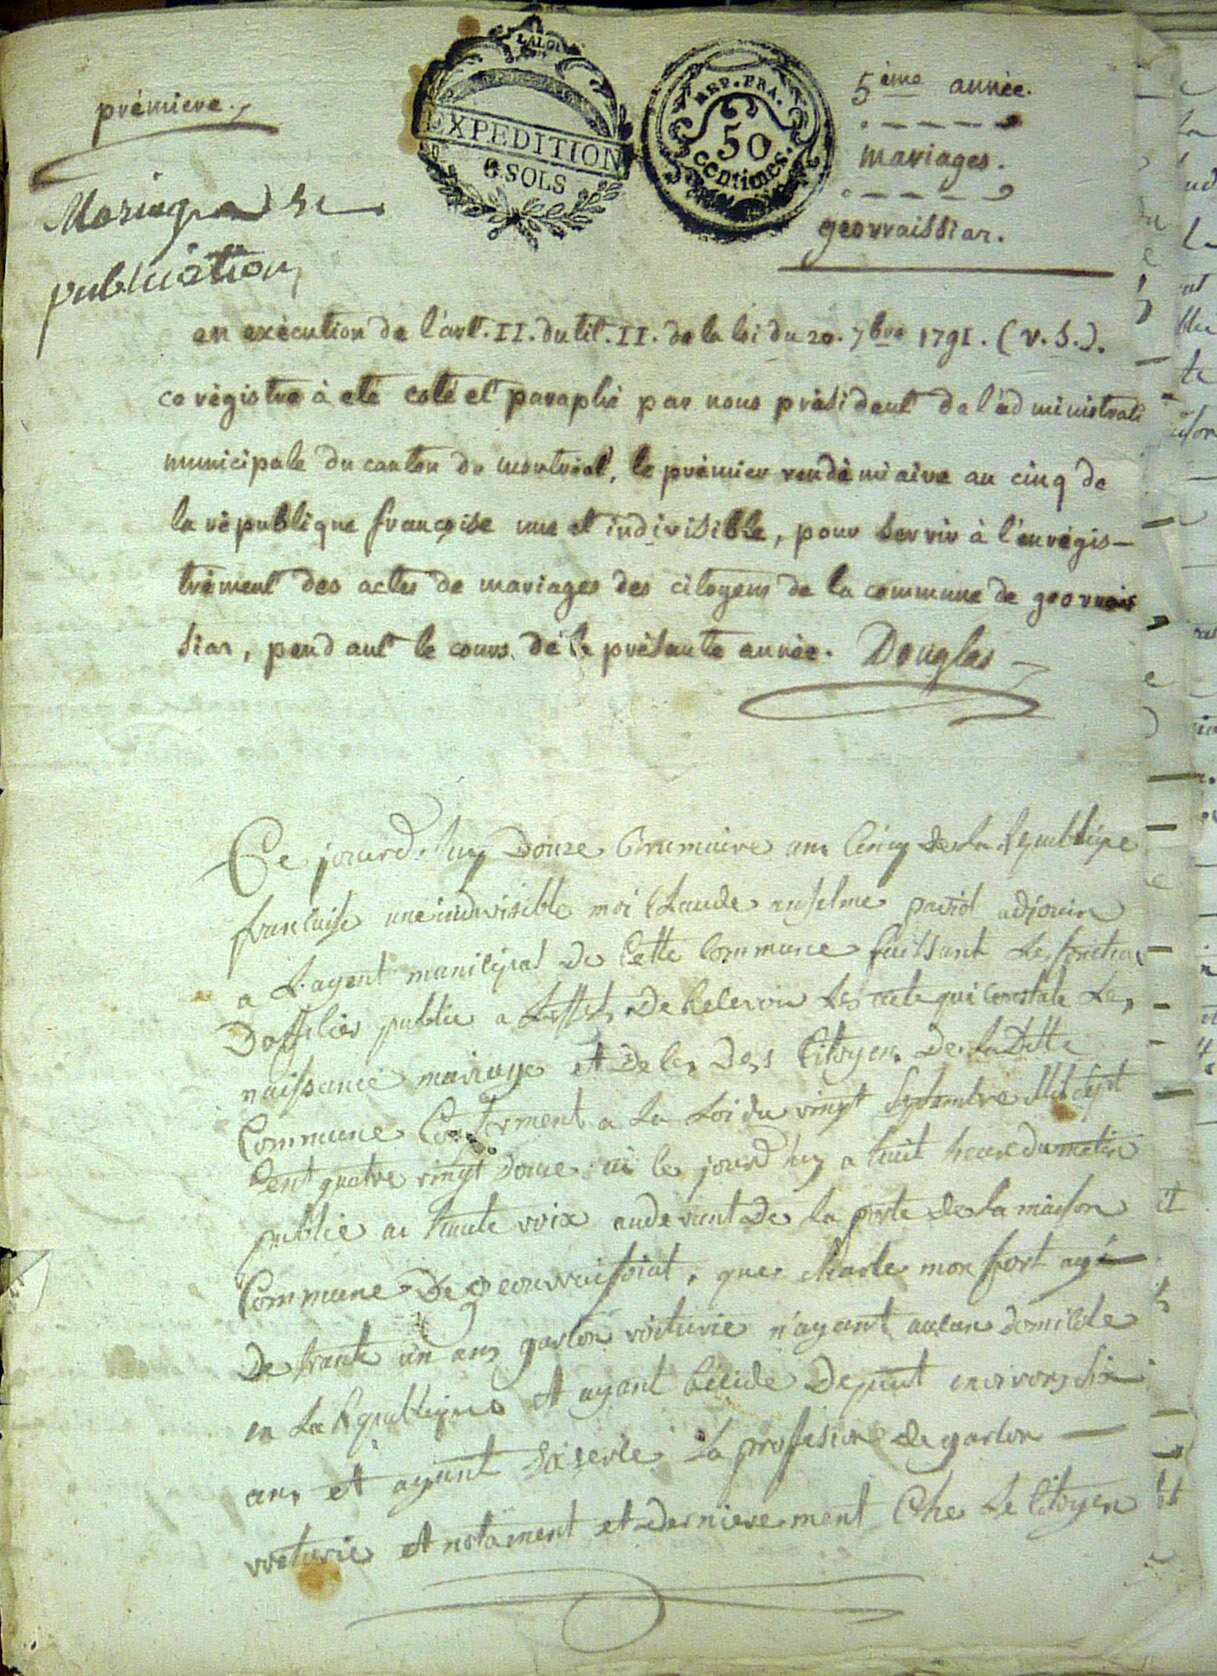 prémiere.
Mariage &
publication
LA LOI
EXPEDITION
6. SOLS
REP. FRA.
50
centimes.
5ème année.
mariages.
geovraissiat.
en exécution de l'art. II. du tit. II. de la loi du 20. 7bre 1791. (v. S.).
ce régistre à eté coté et paraphé par nous président de l'administrati
municipale du canton de montréal, le prémier vendémiaire an cinq de
la république françoise une et indivisible, pour servir à l'enrégis-
trément des actes de mariages des citoyens de la commune de geovrais
siat, pendant le cours de la présente année. Douglas
Ce jourd'huy Douze Brumaire an Cinq de la Republique
francaise une indivisible moi Claude anselme paviot adjoin
a L'agent municipal De Cette Commune faissant Les fonction
D'officier public a L'effet De Recevoir Les acte qui Constate Les
naissance mariage et Deces Des Citoyen De La Ditte
Commune Conforment a La Loi du vingt Septembre Mil Sept
Cent quatre vingt Douze ai ce jourd'huy a huit heure du matin
publie a haute voix audevant De la porte De la maison
Commune De geouvraissiat, que Charle monfort agé
De trante un ans garson voiturie n'ayant aucun domicile
en La Republique et ayant Décidé Depuit environ six
ans et ayant Exserce la profesion de garson
voiturie et notament et Dernierement Che Le Citoyen